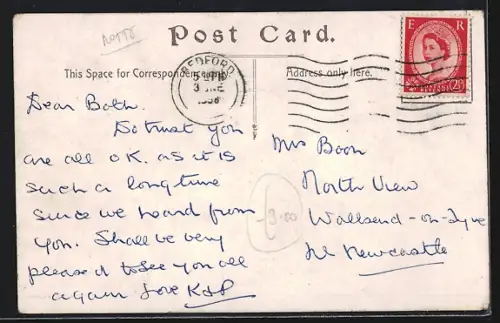 Notts
Post Card.
E R
BEDFORD
3 NE
1958
POSTAGE 2½D
This Space for Correspondence only.
Address only here.
Dear Both.
Do trust you
are all O.K. as it is
such a long time
since we heard from
you. Shall be very
pleased to see you all
again Love K&P
Mrs Boon
North View
Wallsend-on-Tyne
Nr Newcastle
3.00